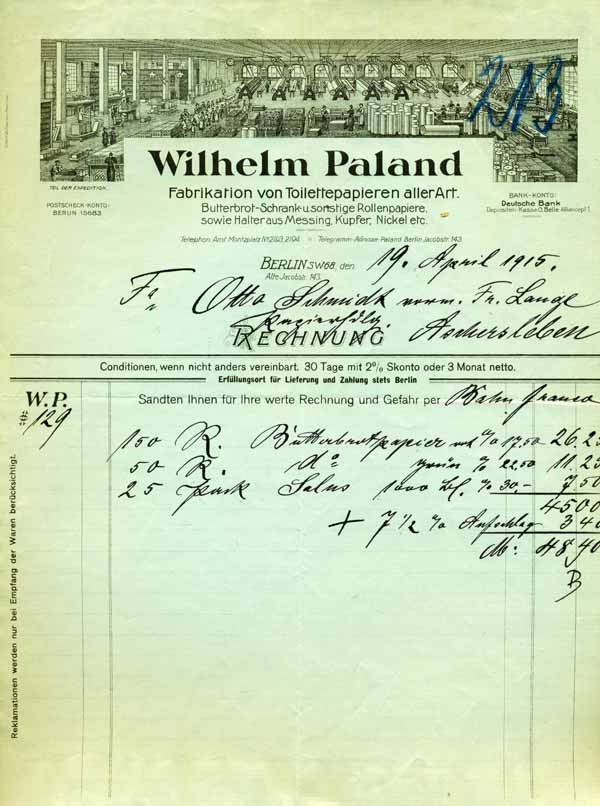 213
TEIL DER EXPEDITION.
Wilhelm Paland
Fabrikation von Toilettepapieren aller Art.
Butterbrot-Schrank-u.sonstige Rollenpapiere,
sowie Halter aus Messing, Kupfer, Nickel etc.
POSTSCHECK-KONTO:
BERLIN 15683
BANK-KONTO:
Deutsche Bank
Depositen-Kasse O, Belle Alliancepl 1.
Telephon: Amt Moritzplatz Telegramm-Adresse: Paland Berlin Jacobstr. 143.
BERLIN SW68, den 19. April 1915.
Alte Jacobstr. 143.
Fa. Otto Schmidt vorm. Fr. Lange
Papierhdlg.
RECHNUNG Aschersleben
Conditionen, wenn nicht anders vereinbart. 30 Tage mit 2% Skonto oder 3 Monat netto.
Erfüllungsort für Lieferung und Zahlung stets Berlin
W.P.
# 129
Sandten Ihnen für Ihre werte Rechnung und Gefahr per Bahn franco
150 R. Butterbrotpapier % 17,50 26,25
50 R. do grün % 22,50 11,25
25 Pack Salus 1000 Bl. % 30.- 7,50
45 00
+ 7 1/2 % Aufschlag 3 40
M: 48,40
B
Reklamationen werden nur bei Empfang der Waren berücksichtigt.